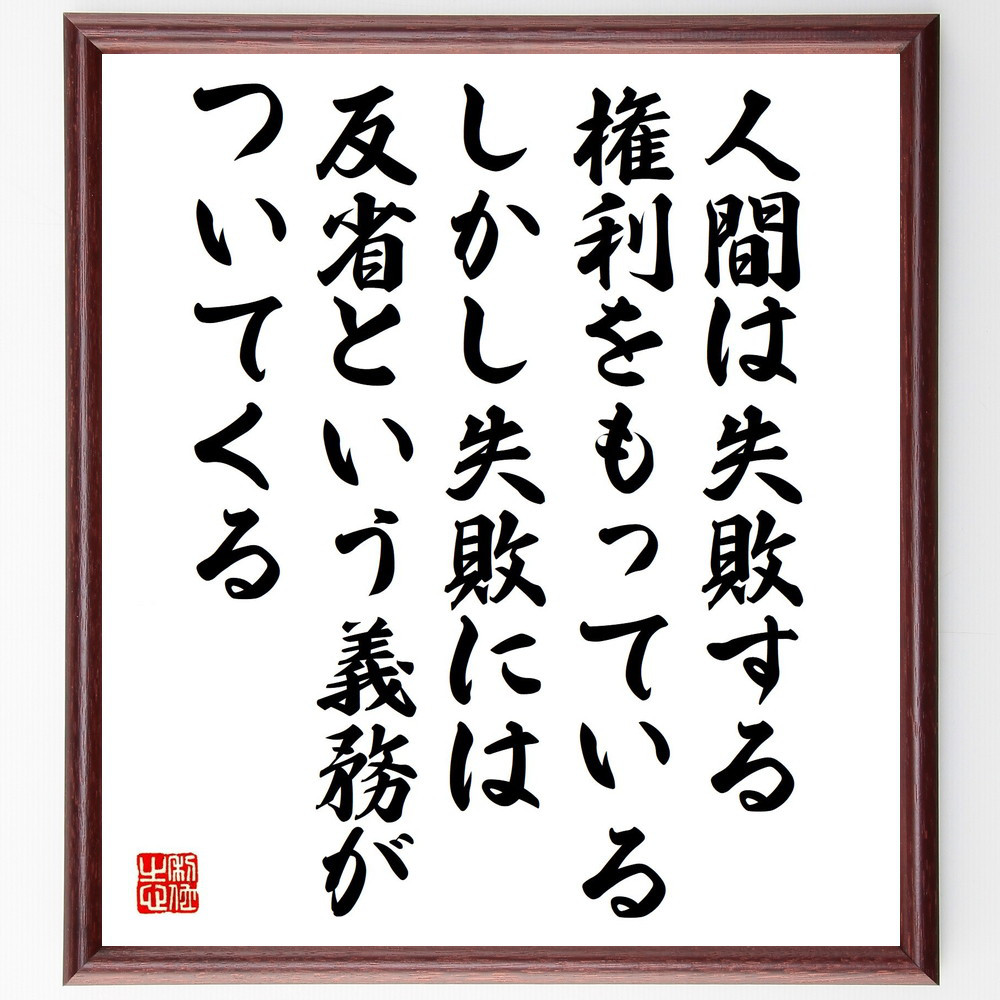 人間は失敗する
権利をもっている
しかし失敗には
反省という義務が
ついてくる